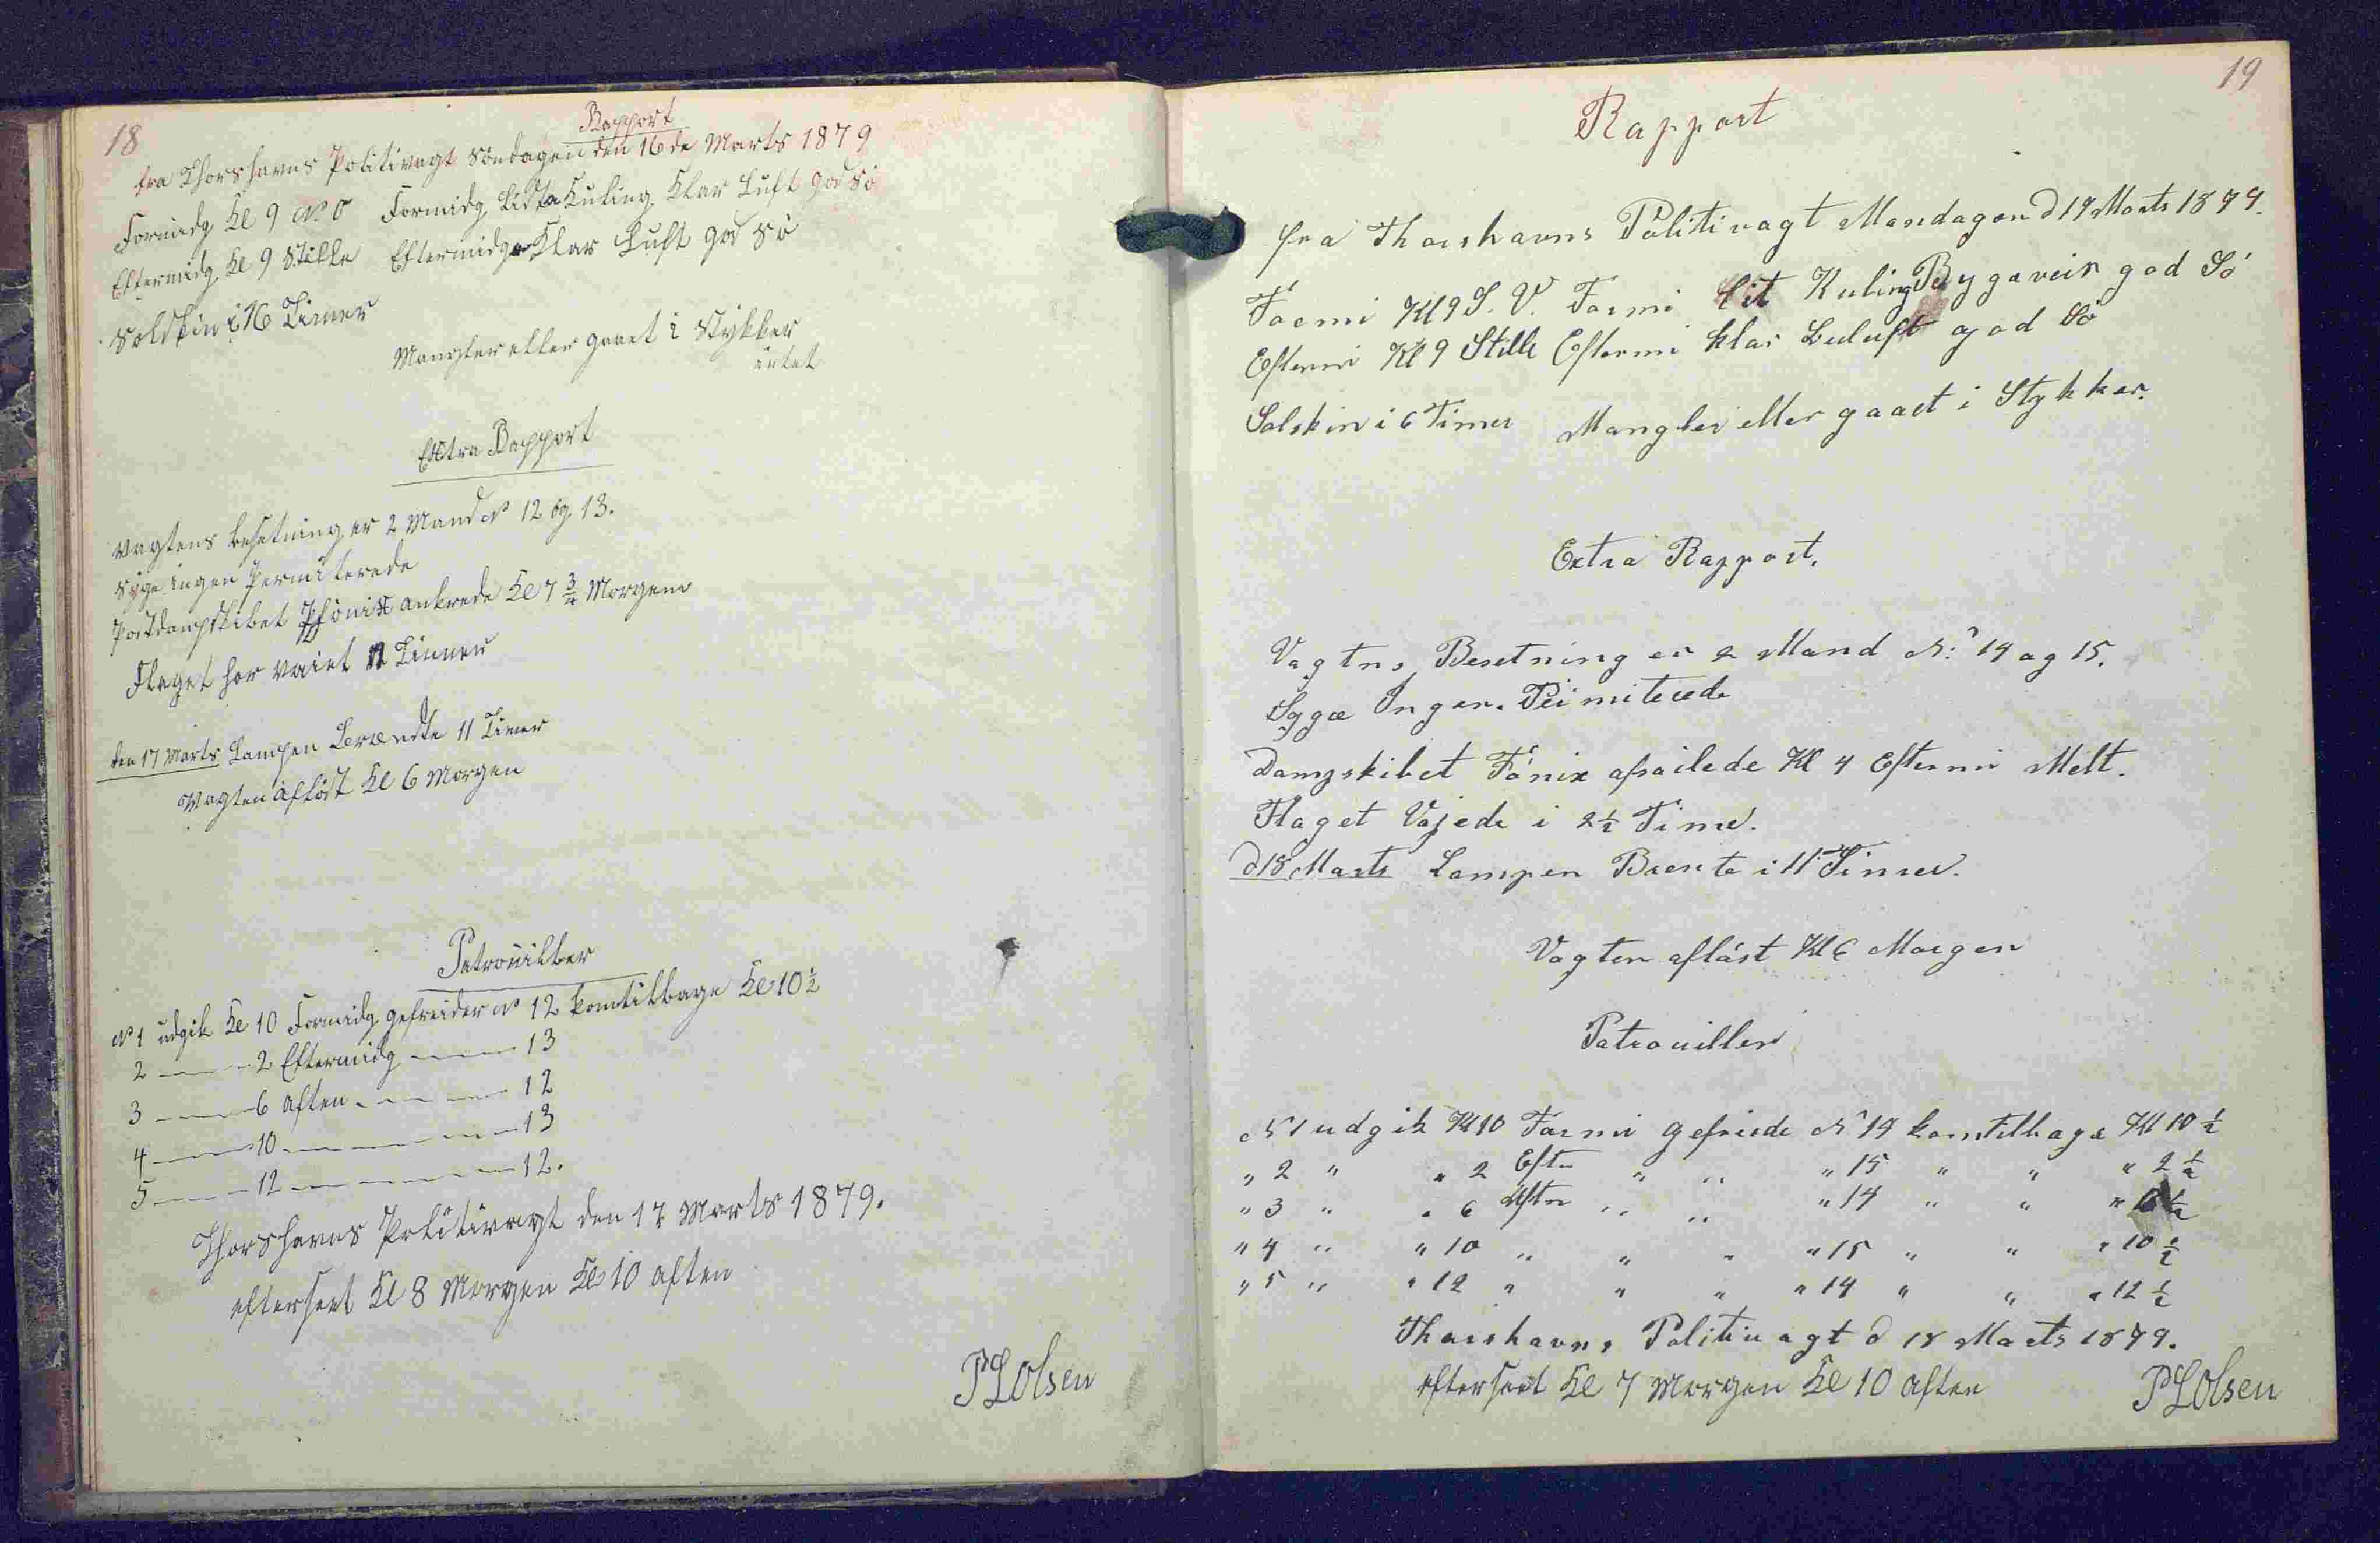 18
Rapport
fra Thorshavns Politivagt Söndagen den 16de Marts 1879
Formidg Kl 9 N. O Formidg Lidta Kuling Klar Luft god Sö
Eftermidg Kl 9 Stille Eftermidg Klar Luft god Sö
Solskin i Timer
Mangler eller gaaet i Stykker
intet
Extra Rapport
Vagtens besetning er 2 Mand No 12 og 13.
Syge ingen Permiterede
Postdampskibet Phönix ankrede Kl 7 3/4 Morgen
Flaget har vaiet Timer
den 17 Marts Lampen Brændte 11 Timer
Vagten aflöst Kl 6 Morgen
Patrouiller
No 1 udgik Kl 10 Formidg gefreider No 12 komtilbage Kl 10 1/2
2 — — 2 Eftermidg — — 13
3 — — 6 aften — — — 12
4 — — 10 — — — — 13
5 — — 12 — — — — 12.
Thorshavns Politivagt den 17 Marts 1879.
efterseet Kl 8 Morgen Kl 10 aften
PLOlsen
19
Rapport
fra Thorshavns Politivagt Mandagen d 17 Marts 1879.
Formi Kl 9 S. V. Formi lit Kuling Bygaveir god Sö
Eftermi Kl 9 Stille Eftermi klar Luft god Sö
Solskin i 6 Timer Mangler eller gaaet i Stykker.
Extra Rapport.
Vagtns Besetning er 2 Mand N: 14 og 15.
Syge Ingen. Permiterede
Dampskibet Fönix afsailede Kl 4 Eftermi Melt.
Flaget Vajede i 2 1/2 Time.
d 18 Marts Lampen Brente i 11 Timer.
Vagten aflöst Kl 6 Morgen
Patrouiller
No 1 udgik Kl 10 Formi gefriede No 14 komtilbage Kl 10 1/2
" 2 " " 2 Eftn " " " 15 " " " 2 1/2
" 3 " " 6 Aftn " " " 14 " " " 6 1/2
" 4 " " 10 " " " " 15 " " " 10 1/2
" 5 " " 12 " " " " 14 " " " 12 1/2
Thorshavns Politivagt d 18 Marts 1879.
efterseet Kl 7 Morgen Kl 10 aften
PLOlsen